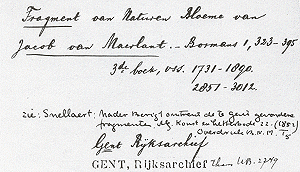 Fragment van Naturen Bloeme van
Jacob van Maerlant. – Bormans 1, 323-395
3de boek, vss. 1731-1890.
2851-3012.
zie: Snellaert: Nader berigt omtrent de te Gend gevondene
fragmenten Mg. Konst en Letterblad 22. (1851)
Overdruk B.N.M. T/5
Gent Rijksarchief
GENT, Rijksarchief thans U.B. 2749